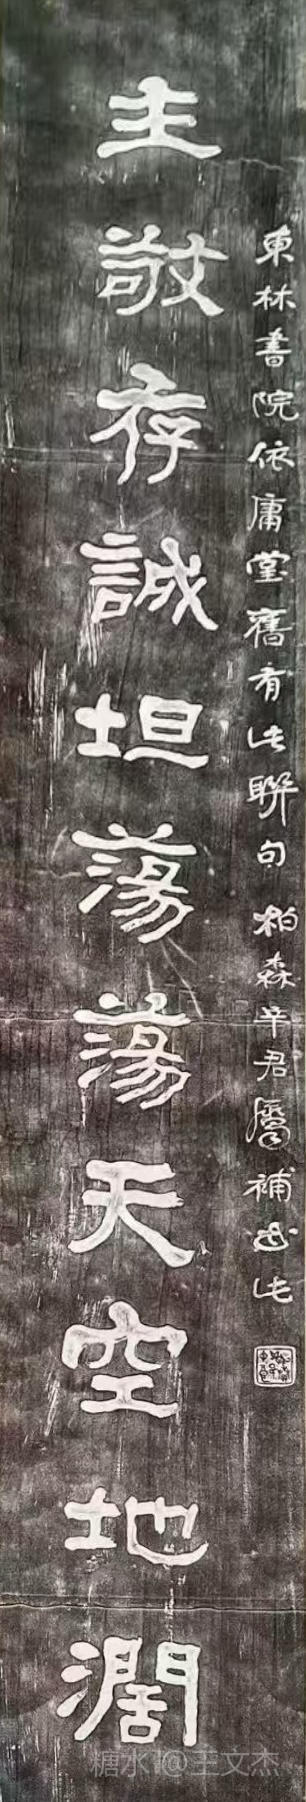 東林書院依庸堂舊有此聯句 柏森辛君屬補書此
主敬存誠坦蕩蕩天空地濶
糖水1@王文杰